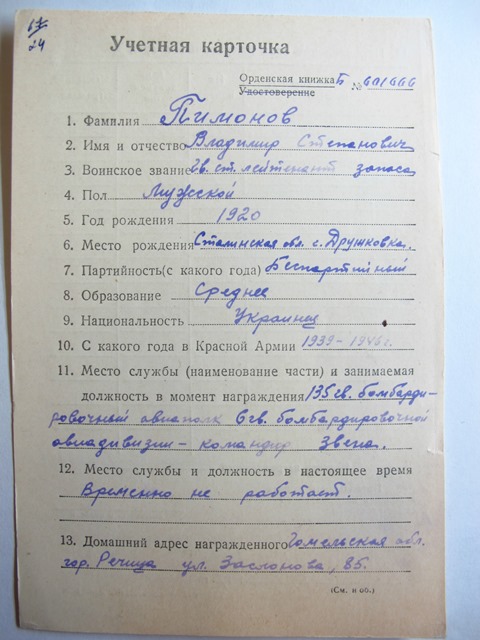 24
Учетная карточка
Орденская книжка Б № 601666
Удостоверение
1. Фамилия Пимонов
2. Имя и отчество Владимир Степанович
3. Воинское звание Гв. ст. лейтенант запаса
4. Пол Мужской
5. Год рождения 1920
6. Место рождения Сталинская обл. с. Дружковка.
7. Партийность (с какого года) Беспартийный
8. Образование Среднее
9. Национальность Украинец
10. С какого года в Красной Армии 1939-1946г.
11. Место службы (наименование части) и занимаемая
должность в момент награждения 135 гв. бомбарди-
ровочный авиаполк 6 гв. бомбардировочной
авиадивизии - командир звена.
12. Место службы и должность в настоящее время
Временно не работает.
13. Домашний адрес награжденного Гомельская обл.
гор. Речица ул. Заслонова, 85.
(См. н об.)